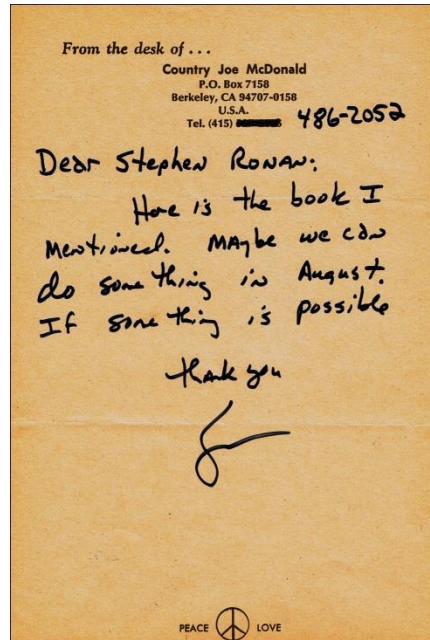 From the desk of . . .
Country Joe McDonald
P.O. Box 7158
Berkeley, CA 94707-0158
U.S.A.
Tel. (415) 486-2052
Dear Stephen Ronan:
Here is the book I
mentioned. Maybe we can
do something in August.
If something is possible
thank you
PEACE LOVE